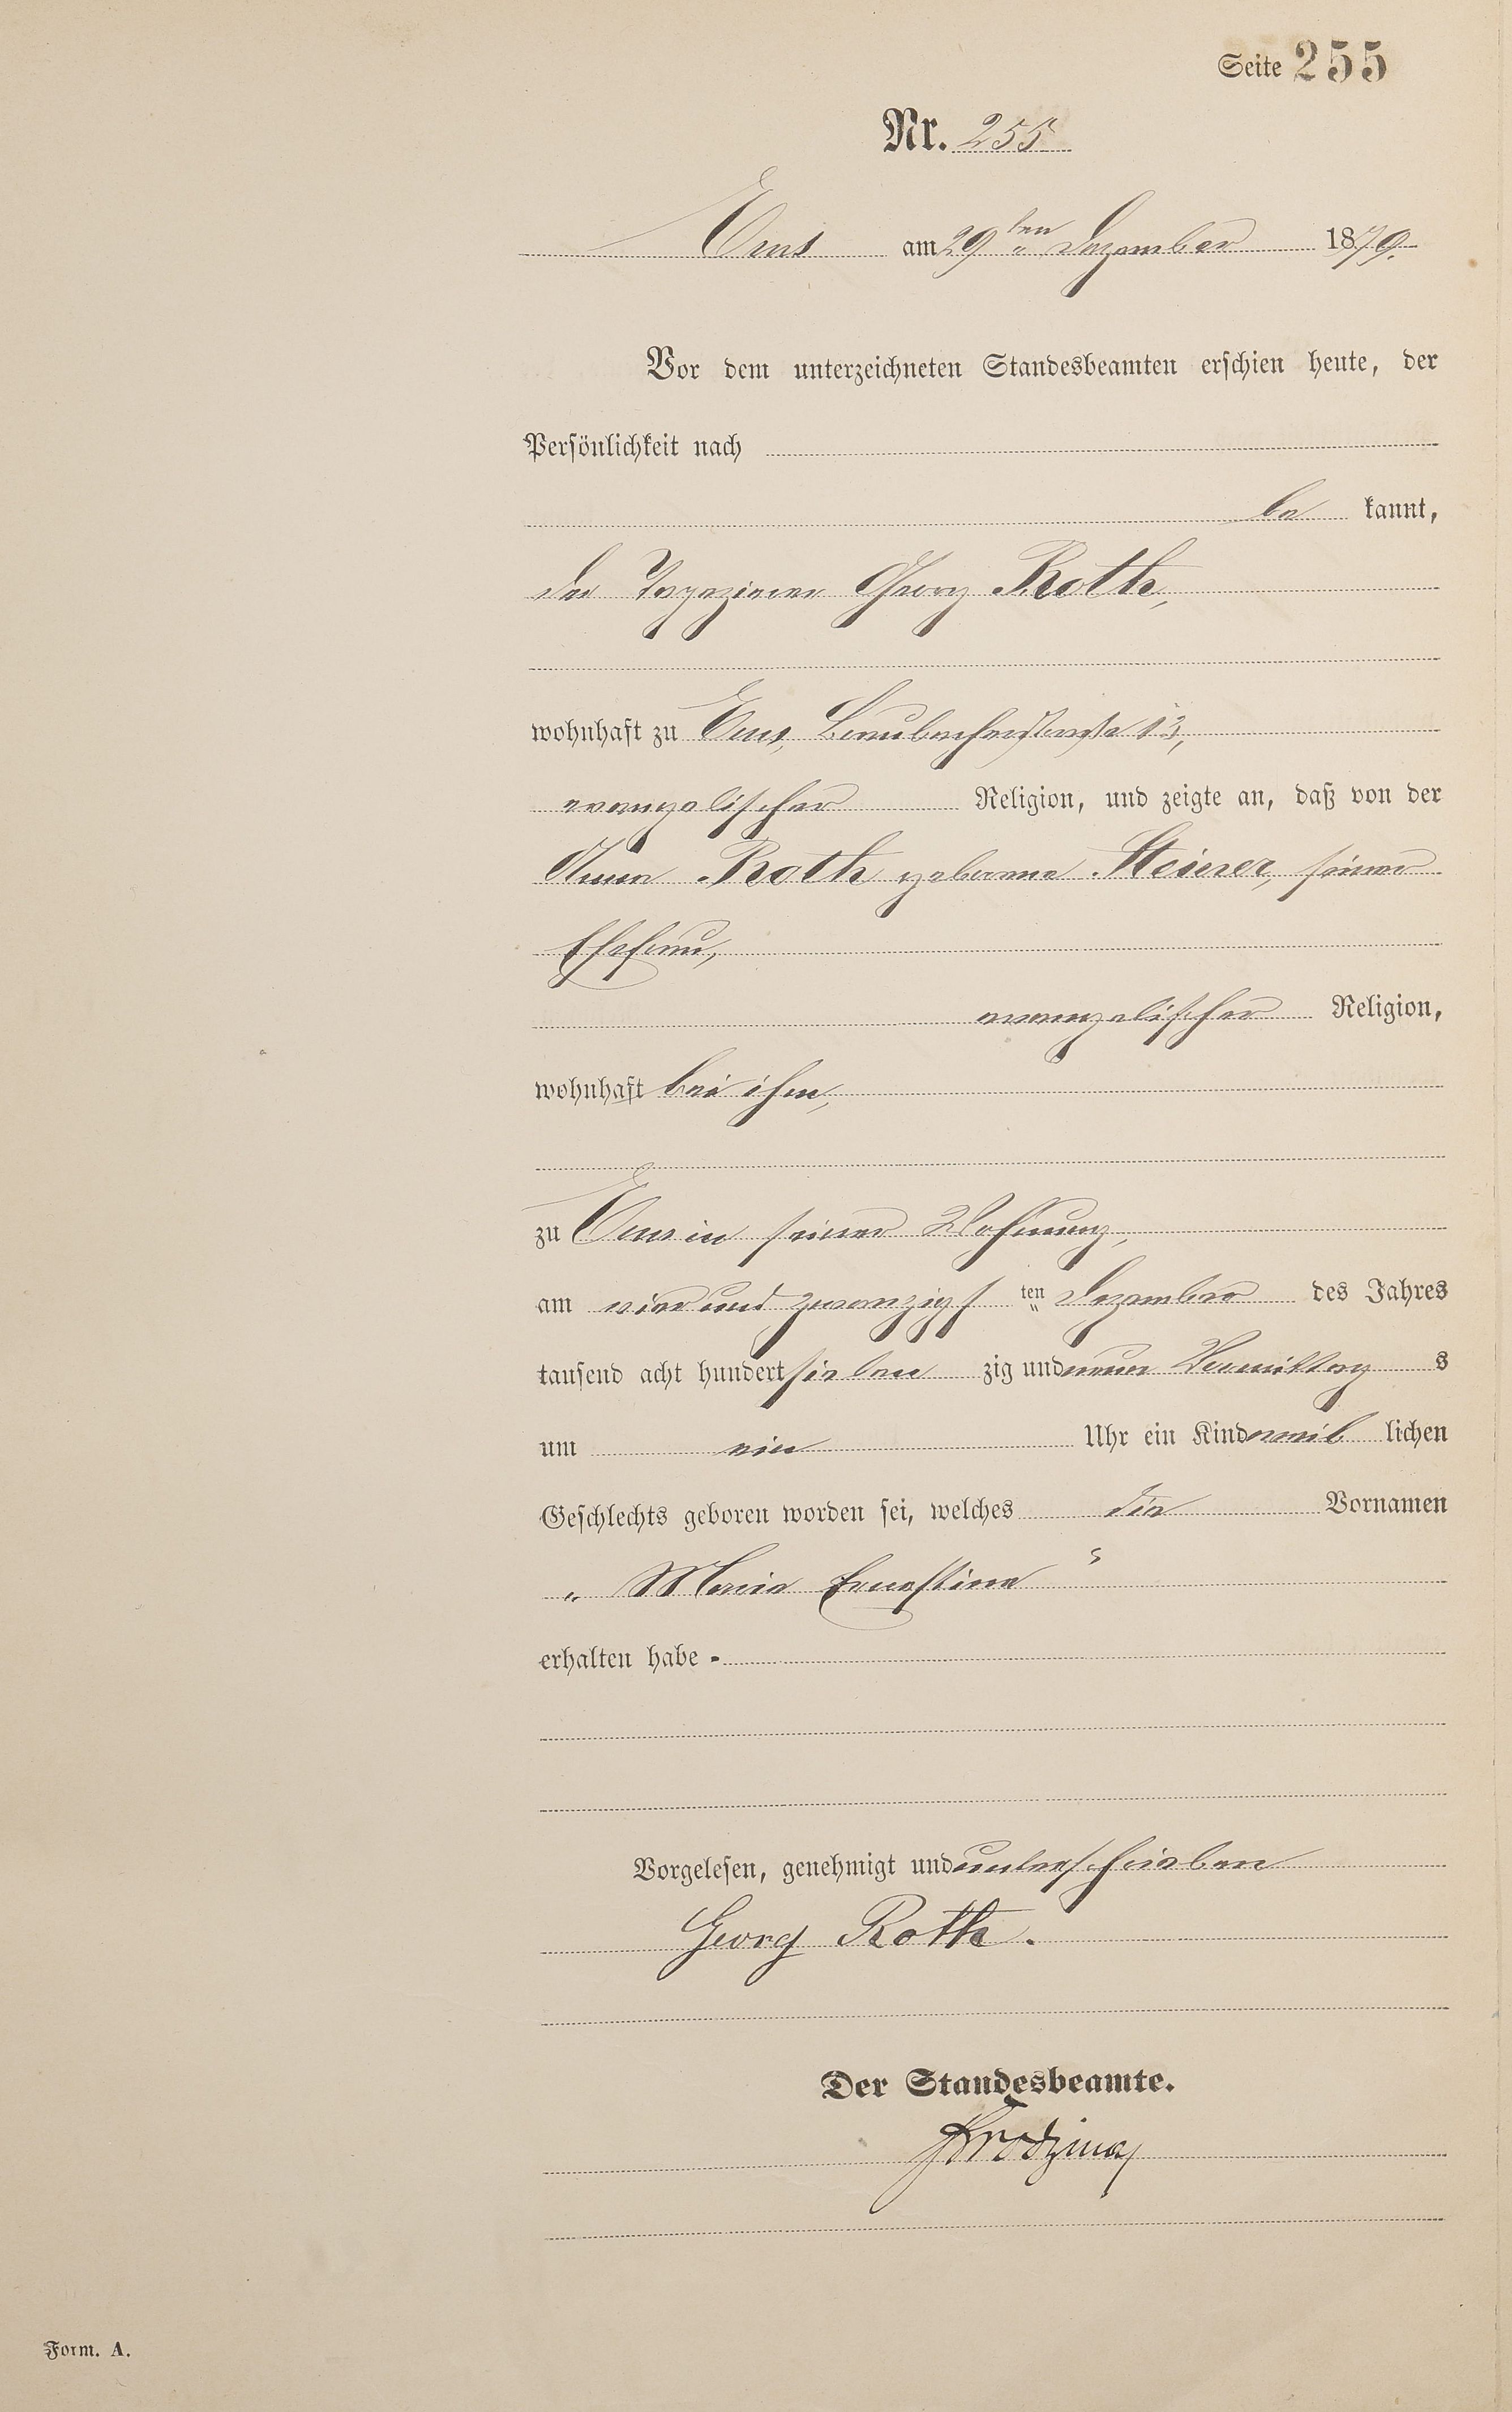 Seite 255
Nr. 255
Ems am 29ten Dezember 1879.
Vor dem unterzeichneten Standesbeamten erschien heute, der
Persönlichkeit nach
be kannt,
der Tapezierer Georg Roth,
wohnhaft zu Ems, Braubacherstraße 13,
evangelischer Religion, und zeigte an, daß von der
Anna Roth geborene Steiner, seiner
Ehefrau,
evangelischer Religion,
wohnhaft bei ihm,
zu Ems in seiner Wohnung,
am vier und zwanzigs ten Dezember des Jahres
tausend acht hundert sieben zig und neun Vormittag s
um ein Uhr ein Kind weib lichen
Geschlechts geboren worden sei, welches die Vornamen
„ Maria Ernestine “
erhalten habe.
Vorgelesen, genehmigt und unterschrieben
Georg Roth.
Der Standesbeamte.
Form. A.